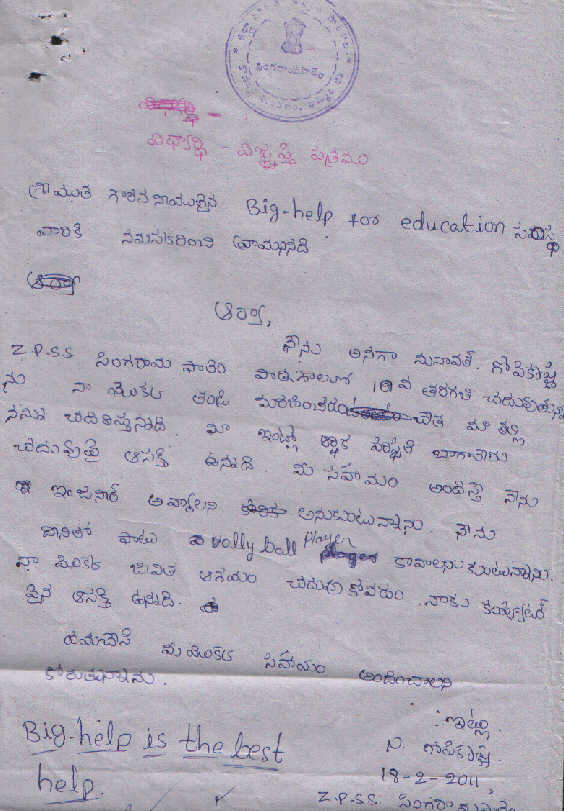 సింగరాయపాలెం
విద్యార్థి - విజ్ఞప్తి పత్రము
Big-help for education సంస్థ
వారికి నమస్కరించి వ్రాయునది
ఆర్యా,
నేను అనగా గోపికృష్ణ
Z.P.S.S సింగరాయ పాలెం పాఠశాలలో 10వ తరగతి చదువుతున్నా
ను నా యొక్క తండ్రి మరణించడం చేత మా తల్లి
నన్ను చదివిస్తున్నది. మా ఇంట్లో ఆర్థిక పరిస్థితి బాగాలేదు
చదువుపై ఆసక్తి ఉన్నది. మీ సహాయం అందిస్తే నేను
ఇంజనీర్ అవ్వాలని అనుకుంటున్నాను నేను
దానితో పాటు volly ball player కావాలనుకుంటున్నాను.
నా యొక్క జీవిత ఆశయం చదువుకోవడం. నాకు కంప్యూటర్
పైన ఆసక్తి ఉన్నది.
దయచేసి మీ యొక్క సహాయం అందించాలని
కోరుతున్నాను.
ఇట్లు,
N. గోపికృష్ణ
18-2-2011,
Z.P.S.S.
Big-help is the best
help.